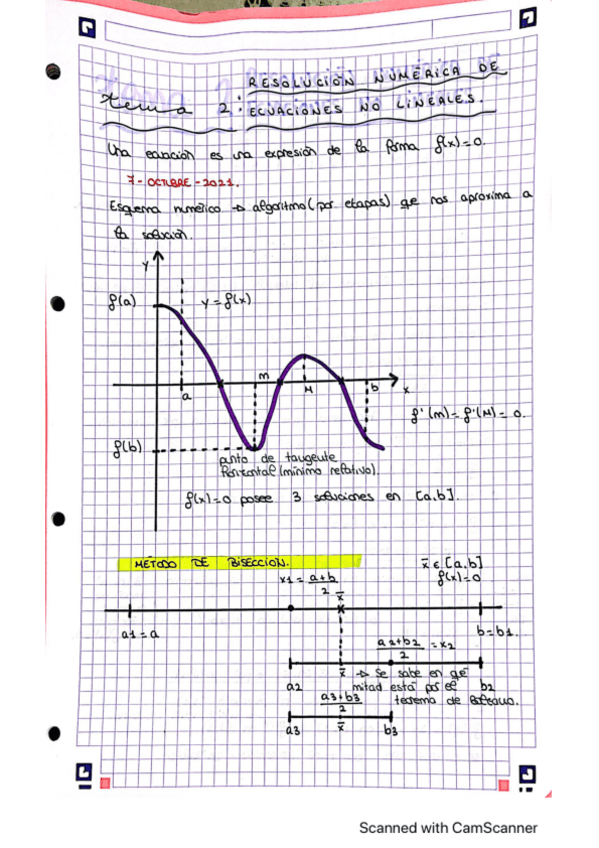 RESOLUCIÓN NUMÉRICA DE
tema 2: ECUACIONES NO LINEALES.
Una ecuación es una expresión de la forma f(x)=0.
7-OCTUBRE-2021.
Esquema numérico → algoritmo (por etapas) que nos aproxima a
la solución.
y
f(a)
y=f(x)
m
a
M
b
x
f'(m)=f'(M)=0.
f(b)
punto de tangente
horizontal (mínimo relativo).
f(x)=0 posee 3 soluciones en [a,b].
MÉTODO DE BISECCIÓN.
x̄ ∈ [a,b]
f(x)=0
x1 = a+b
2
x̄
a1=a
b=b1.
a2+b2 = x2
2
x̄ → Se sabe en qué
a2
mitad está por el
b2
a3+b3
2
teorema de Bolzano.
a3
x̄
b3
Scanned with CamScanner